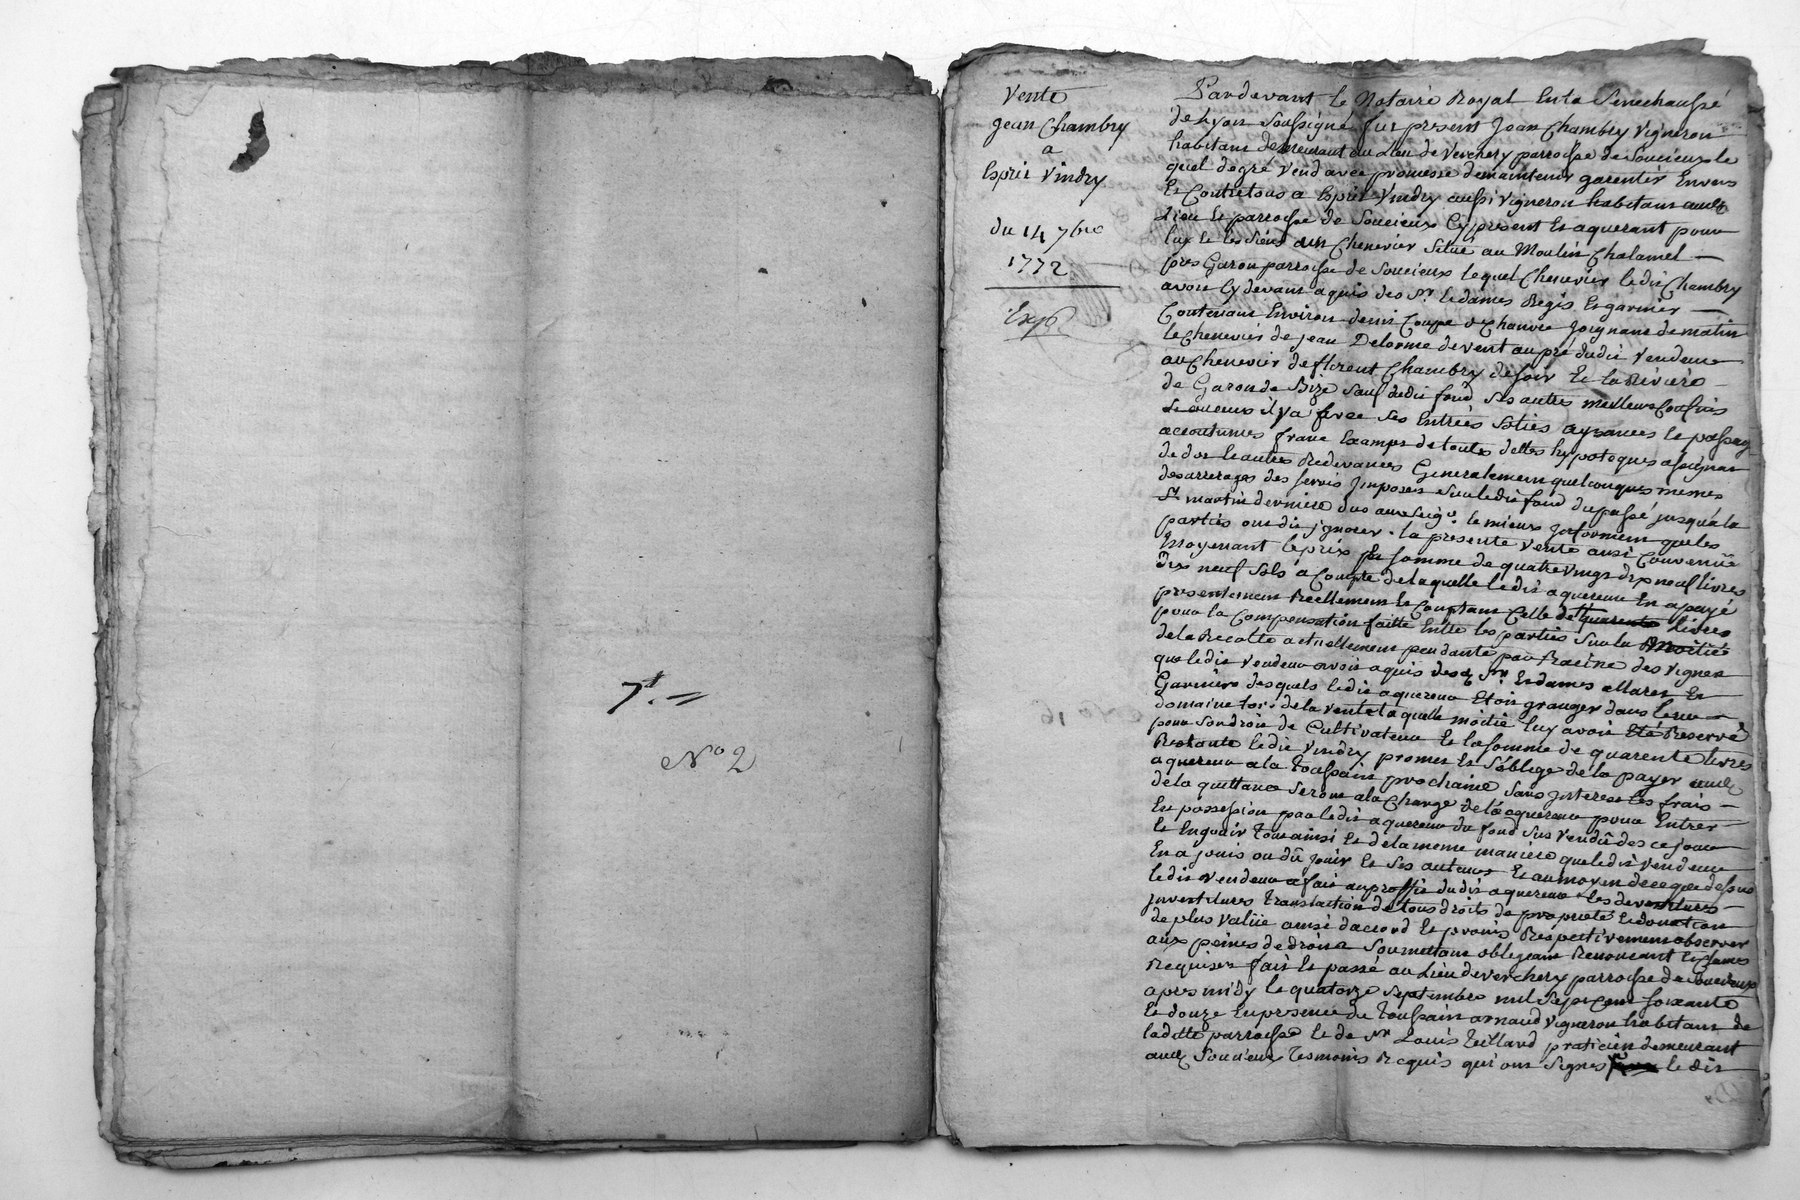 7# . =
N° 2
Vente
Jean Chambry
a
Esprit Vindry
du 14 7bre
1772
Exp
Pardevant le Notaire Royal En la Senechaussé
de Lyon soussigné fut present Jean Chambry vigneron
habitant demeurant au Lieu de Verchery parroisse de Soucieux le
quel de gré vend avec promesse de maintenir garentir Envers
Et Contre tous a Esprit Vindry aussi vigneron habitant aud.
Lieu Et parroisse de Soucieux Cy present Et aquerant pour
luy Et les siens un Chenevier situé au Moulin Chalamel
pres Garon parroisse de Soucieux lequel Chenevier ledit Chambry
avoit Cy devant aquis des Sr. Et dames Regis Et garnier
Contenant Environ demi Coupe de Chanvre Joignant de matin
le Chenevier de jean Delorme de vent au pré dudit Vendeur
au Chenevier de florent Chambry de soir Et la Riviere
de Garon de Bize sauf dudit fond ses autres meilleurs Confins
sy aucuns il y a avec ses Entrées sorties aysances Et passage
accoutumés franc Exampt de toutes dettes hypoteques
de dot Et autres Redevances Generalement quelconques mesmes
des arrerages des servis Imposés sur ledit fond du passé jusqu'a la
St. martin derniere dus aux Seigr. le mieux Informent que les
parties ont dit ignorer. la presente vente ainsi Convenuë
Moyenant le prix Et somme de quatre vingt dix neuf livres
dix neuf sols a Compte de laquelle ledit aquereur En a payé
presentement Reellement Et Comptant Celle de livres
pour la Compensation faitte Entre les parties sur la Moitié
de la Recolte actuellement pendante par Racine des vignes
que ledit vendeur avoit aquis desd. Sr. Et dames allares Et
Garnier desquels ledit aquereur Etoit granger dans leur
domaine lors de la vente laquelle moitié luy avoit Eté Reservé
pour son droit de Cultivateur Et la somme de quarente livres
Restante ledit Vindry promet Et s'oblige de la payer aud.
aquereur a la Toussaint prochaine sans Interest les frais
de la quittance seront a la Charge de l'aquereur pour Entrer
En possession par ledit aquereur du fond sus vendû des ce jour
Et En jouir Tout ainsi Et de la meme maniere que ledit vendeur
En a jouis ou dû jouir Et ses auteurs Et au moyen de ce que dessus
ledit vendeur a fait au proffit dudit aquereur les devestitures
Investitures Translaction de tous droits de proprieté Et donation
de plus valüe ainsi d'accord Et promis Respectivement observer
aux peines de droit Soumettant obligeant Renonçant Et Clauses
Requises fait Et passé au Lieu de Verchery parroisse de Soucieux
apres midy le quatorze Septembre mil Sept Cent soixante
Et douze En presence de Toussaint arnaud vigneron habitant de
laditte parroisse Et de Sr. Louis Teillard praticien demeurant
aud. Soucieux Tesmoins Requis qui ont Signés ledit